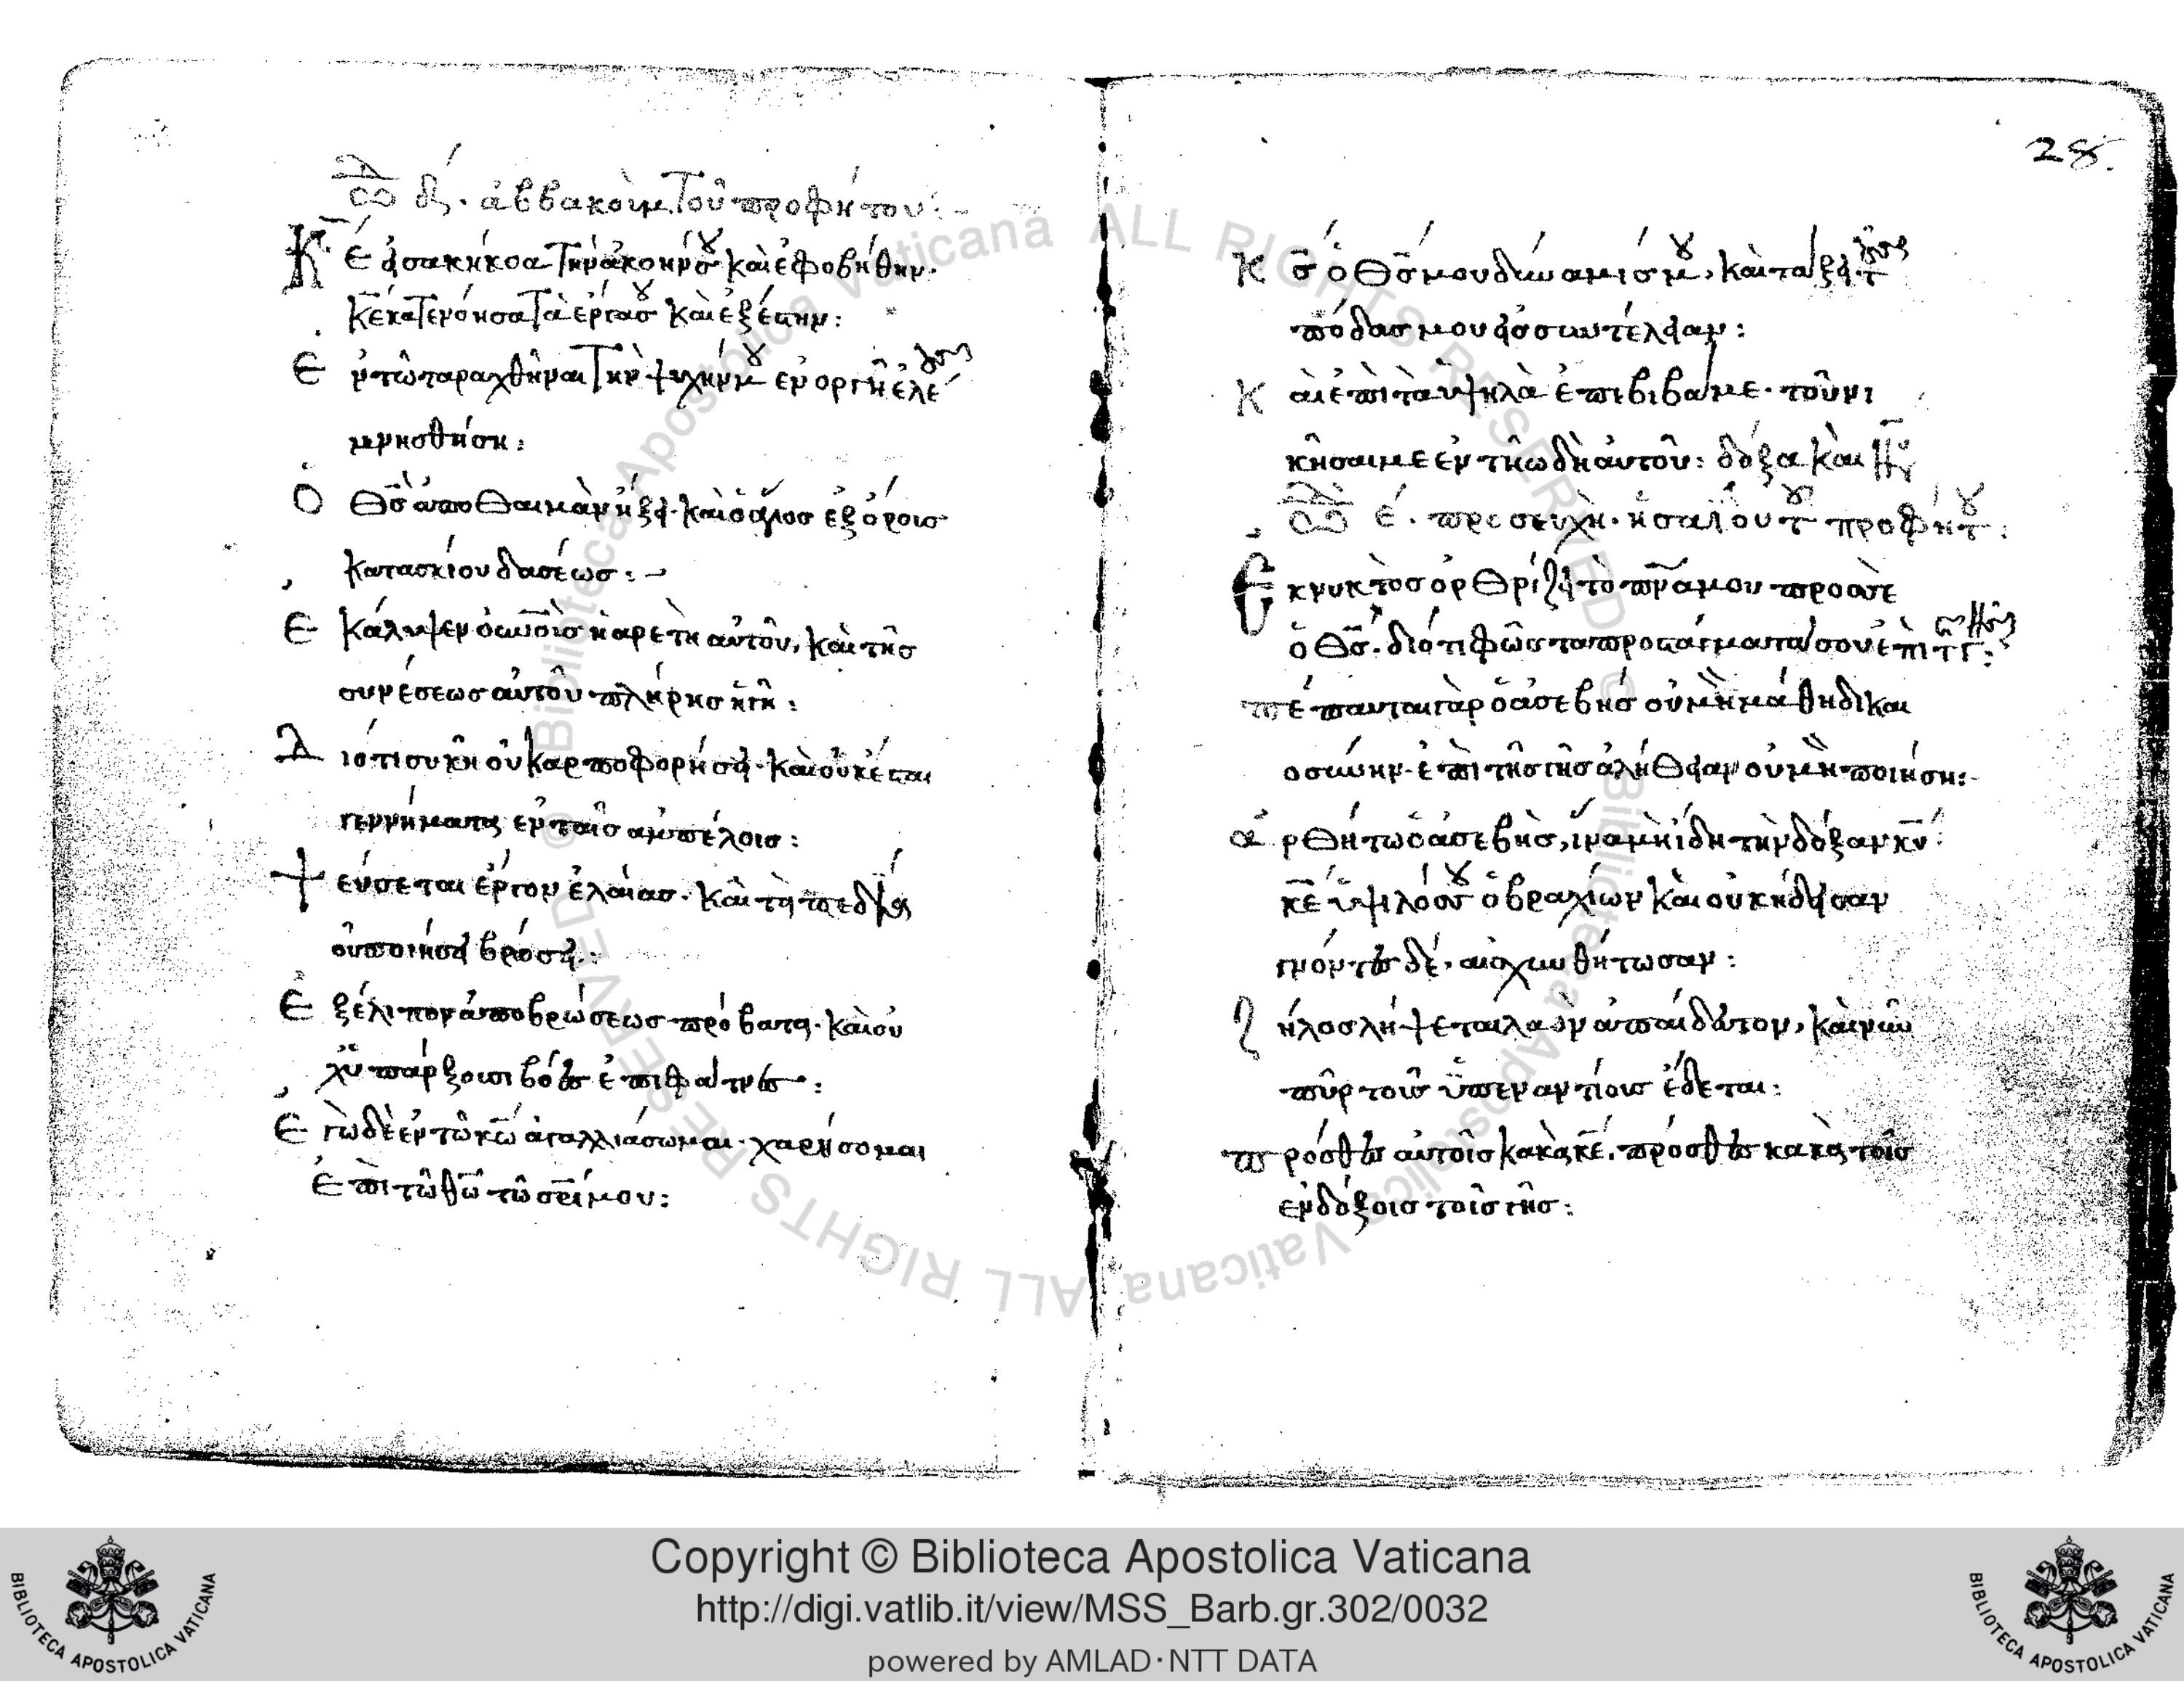 ᾠδὴ δ΄. ἀββακοὺμ τοῦ προφήτου:
Κε εἰσακήκοα τὴν ἀκοήν σου καὶ ἐφοβήθην.
κε κατενόησα τὰ ἔργα σου καὶ ἐξέστην:
Ἐν τῷ ταραχθῆναι τὴν ψυχήν μου ἐν ὀργῇ ἐλέους
μνησθήση:
Ὁ θς ἀπὸ θαιμὰν ἥξει. καὶ ὁ ἅγιος ἐξ ὄρους
κατασκίου δασέως:
Ἐκάλυψεν οὐνοὺς ἡ ἀρετὴ αὐτοῦ, καὶ τῆς
συνέσεως αὐτοῦ πλήρης ἡ γῆ:
Διότι συκῆ οὐ καρποφορήσει. καὶ οὐκ ἔσται
γεννήματα ἐν ταῖς ἀμπέλοις:
Ψεύσεται ἔργον ἐλαίας. καὶ τὰ πεδία
οὐ ποιήσει βρῶσιν:
Ἐξέλιπον ἀπὸ βρώσεως πρόβατα. καὶ οὐ
χ ὑπάρξουσι βόες ἐπὶ φάτναις:
Ἐγὼ δὲ ἐν τῷ κω ἀγαλλιάσωμαι. χαρήσομαι
ἐπὶ τῷ θω τῷ σρι μου:
28.
Κς ὁ θς μου δύναμίς μου, καὶ τάξει τοὺς
πόδας μου εἰς συντέλειαν:
Καὶ ἐπὶ τὰ ὑψηλὰ ἐπιβιβᾷ με. τοῦ νι
κῆσαί με ἐν τῇ ᾠδῇ αὐτοῦ: δόξα καὶ νῦν
ᾠδὴ ε΄. προσευχὴ. ἡσαΐου τοῦ προφήτου:
Ἐκ νυκτὸς ὀρθρίζει τὸ πνα μου πρὸς σὲ
ὁ θς. διότι φῶς τὰ προστάγματά σου ἐπὶ τῆς γῆς:
πέπαυται γὰρ ὁ ἀσεβής οὐ μὴ μάθη δικαι
οσύνην. ἐπὶ τῆς γῆς ἀλήθειαν οὐ μὴ ποιήση:
ἀρθήτω ὁ ἀσεβὴς, ἵνα μὴ ἴδη τὴν δόξαν κυ:
κε ὑψηλός σου ὁ βραχίων καὶ οὐκ ἤδεισαν
γνόντες δέ, αἰσχυνθήτωσαν:
ζῆλος λήψεται λαὸν ἀπαίδευτον, καὶ νῦν
πῦρ τοὺς ὑπεναντίους ἔδεται:
πρόσθες αὐτοῖς κακὰ κε. πρόσθες κακὰ τοῖς
ἐνδόξοις τοῖς γῆς:
Copyright © Biblioteca Apostolica Vaticana
http://digi.vatlib.it/view/MSS_Barb.gr.302/0032
powered by AMLAD·NTT DATA